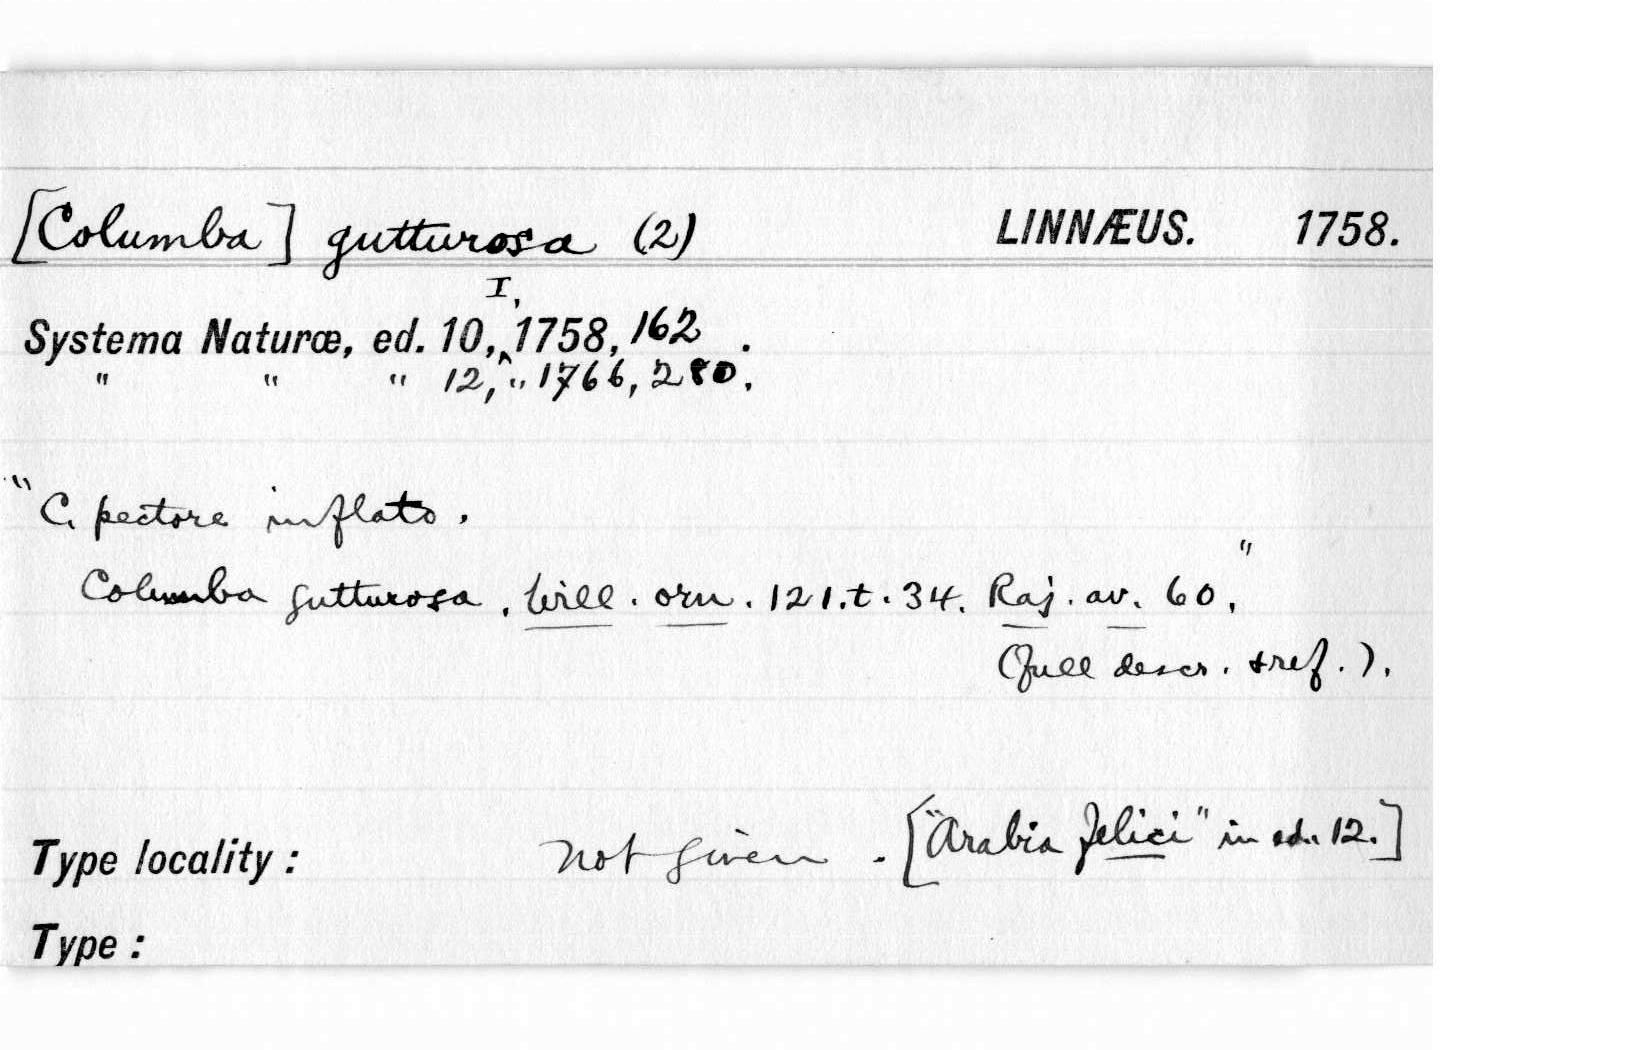 [Columba] gutturosa (2) LINNÆUS. 1758.
I,
Systema Naturæ, ed. 10, ‸ 1758, 162 .
" " " 12, " 1766, 280.
"C. pectore inflato.
Columba gutturosa. Will. orn. 121. t. 34. Raj. av. 60."
(full descr. & ref.).
Type locality: not given. ["Arabia felici" in ed. 12.]
Type: